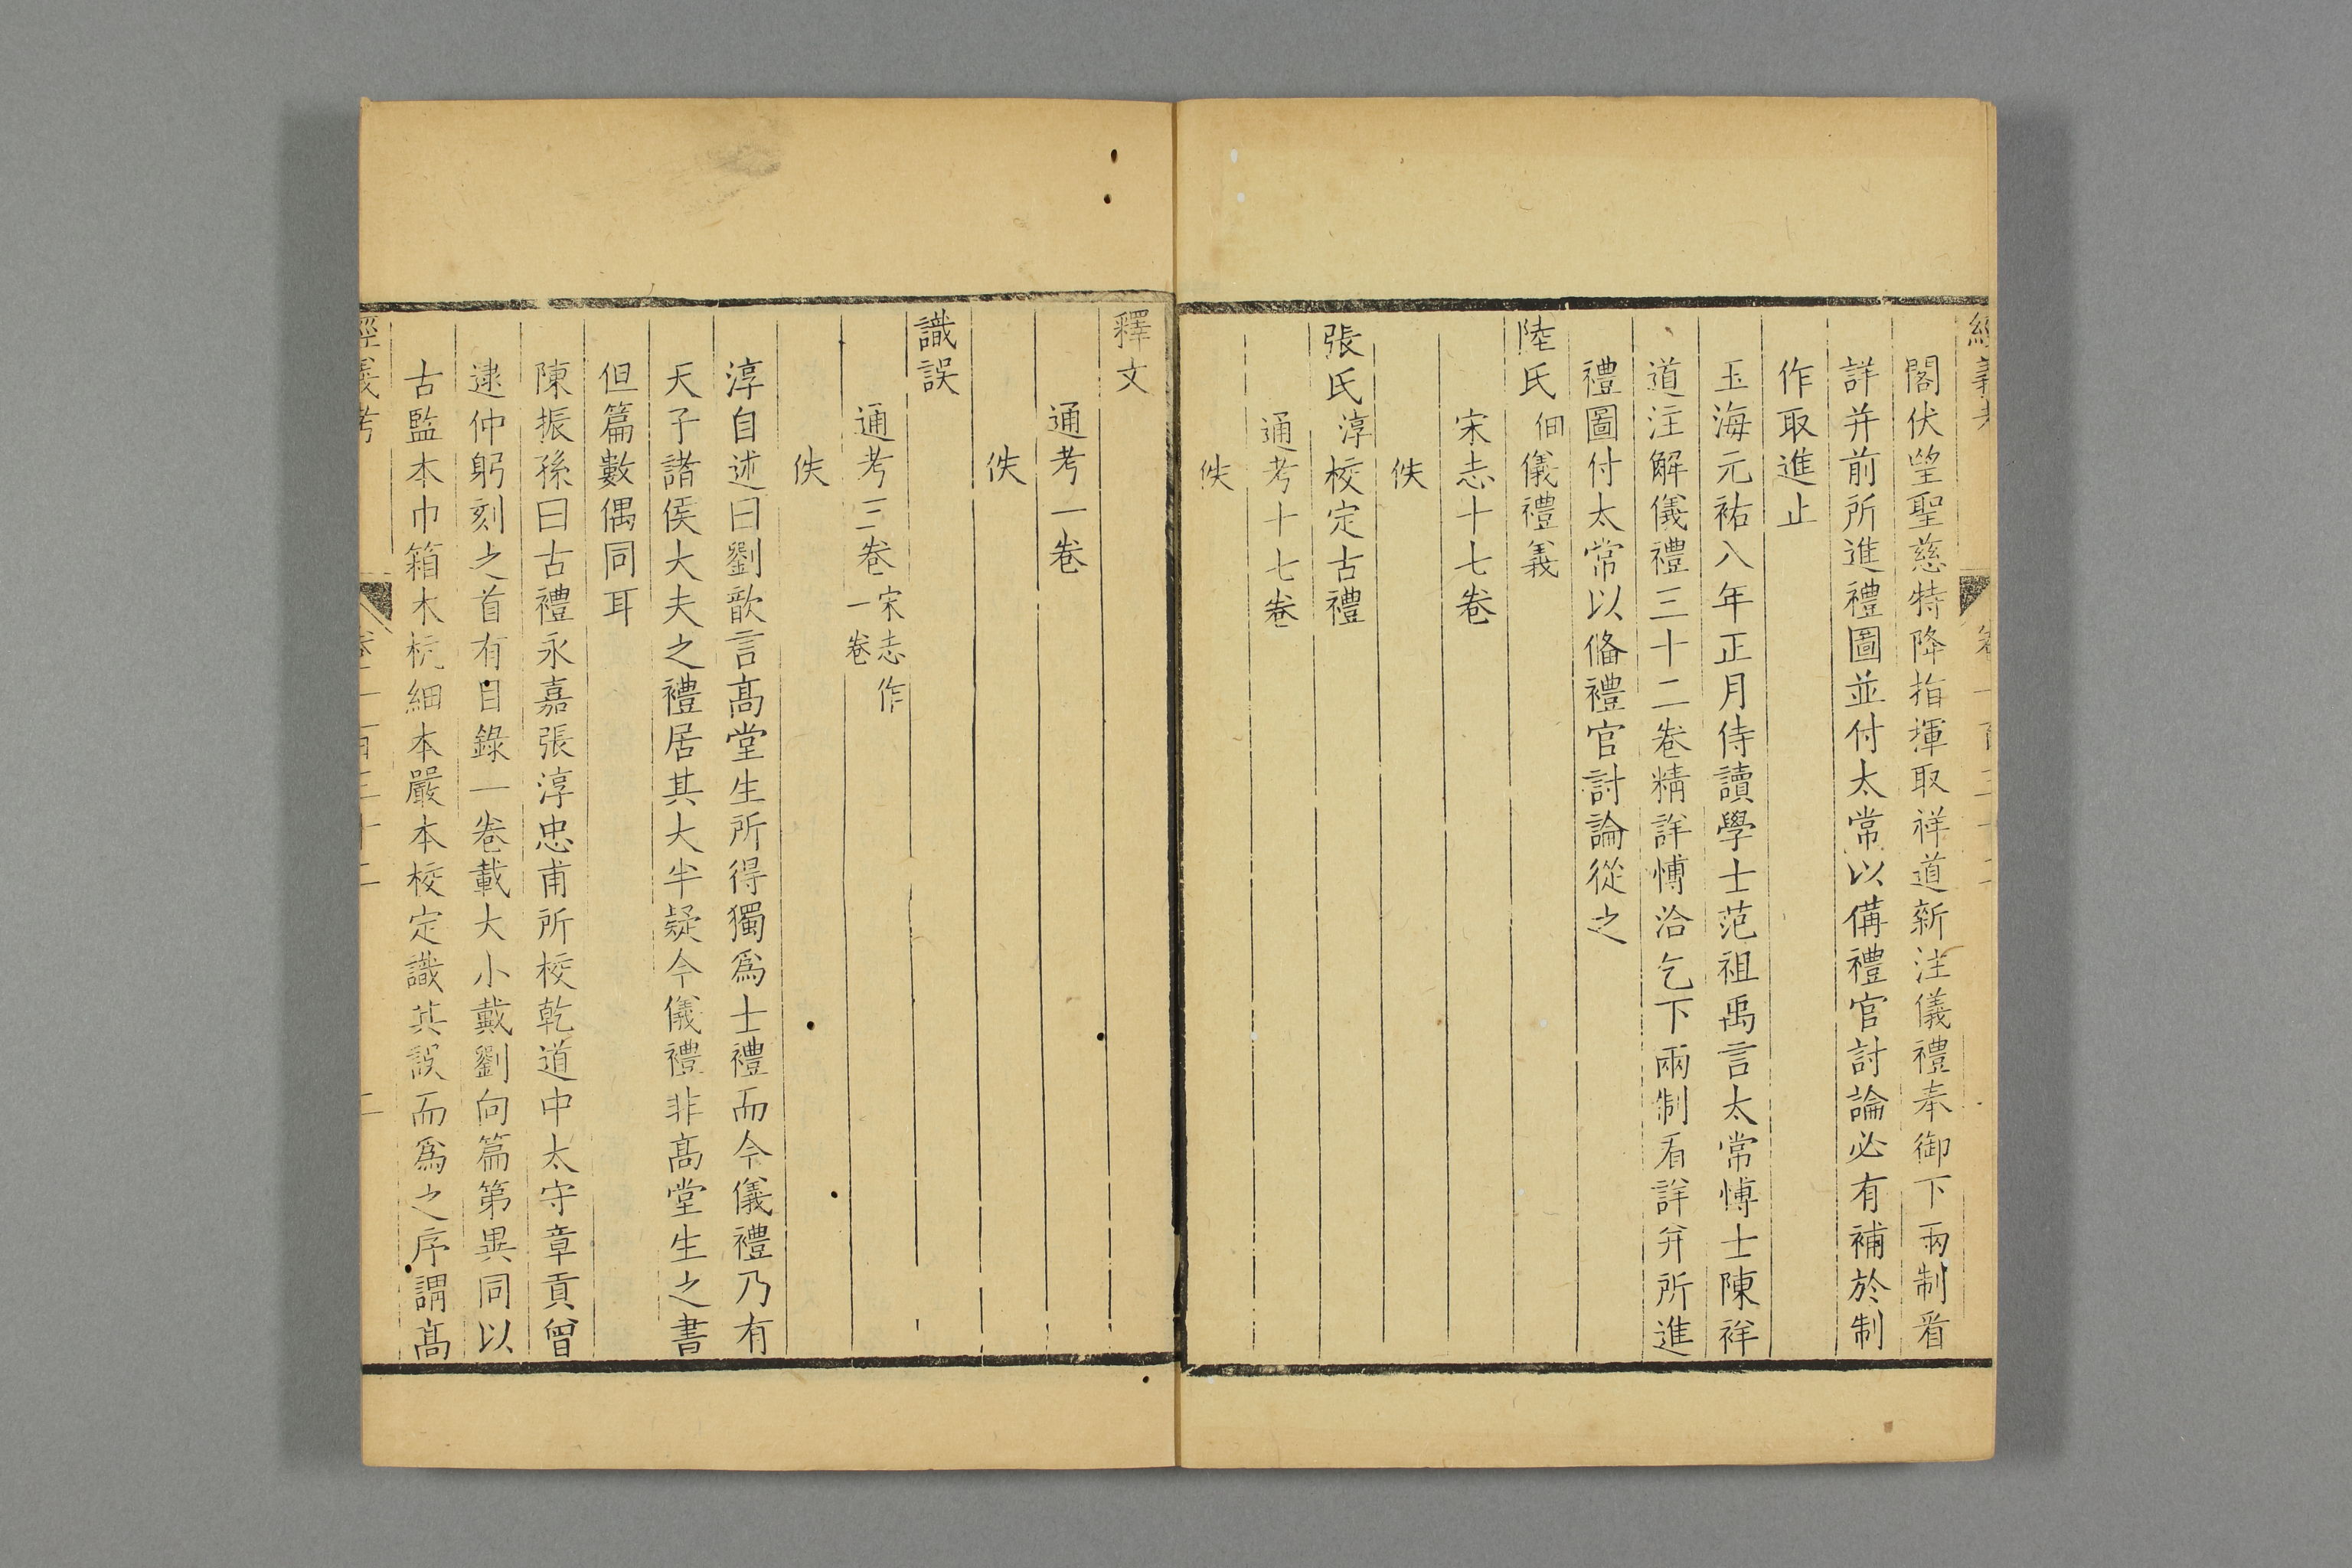 經義考
卷一百三十二
閣伏望聖慈特降指揮取祥道新注儀禮奉御下兩制看
詳并前所進禮圖並付太常以備禮官討論必有補於制
作取進止
玉海元祐八年正月侍讀學士范祖禹言太常博士陳祥
道注解儀禮三十二卷精詳博洽乞下兩制看詳并所進
禮圖付太常以俻禮官討論從之
陸氏佃儀禮義
宋志十七卷
佚
張氏淳校定古禮
通考十七卷
佚
釋文
通考一卷
佚
識誤
通考三卷宋志作一卷
佚
淳自述曰劉歆言髙堂生所得獨爲士禮而今儀禮乃有
天子諸侯大夫之禮居其大半疑今儀禮非髙堂生之書
但篇數偶同耳
陳振孫曰古禮永嘉張淳忠甫所校乾道中太守章貢曾
逮仲躬刻之首有目錄一卷載大小戴劉向篇第異同以
古監本巾箱本杭細本嚴本校定識其誤而爲之序謂髙
經義考
卷一百三十二
二